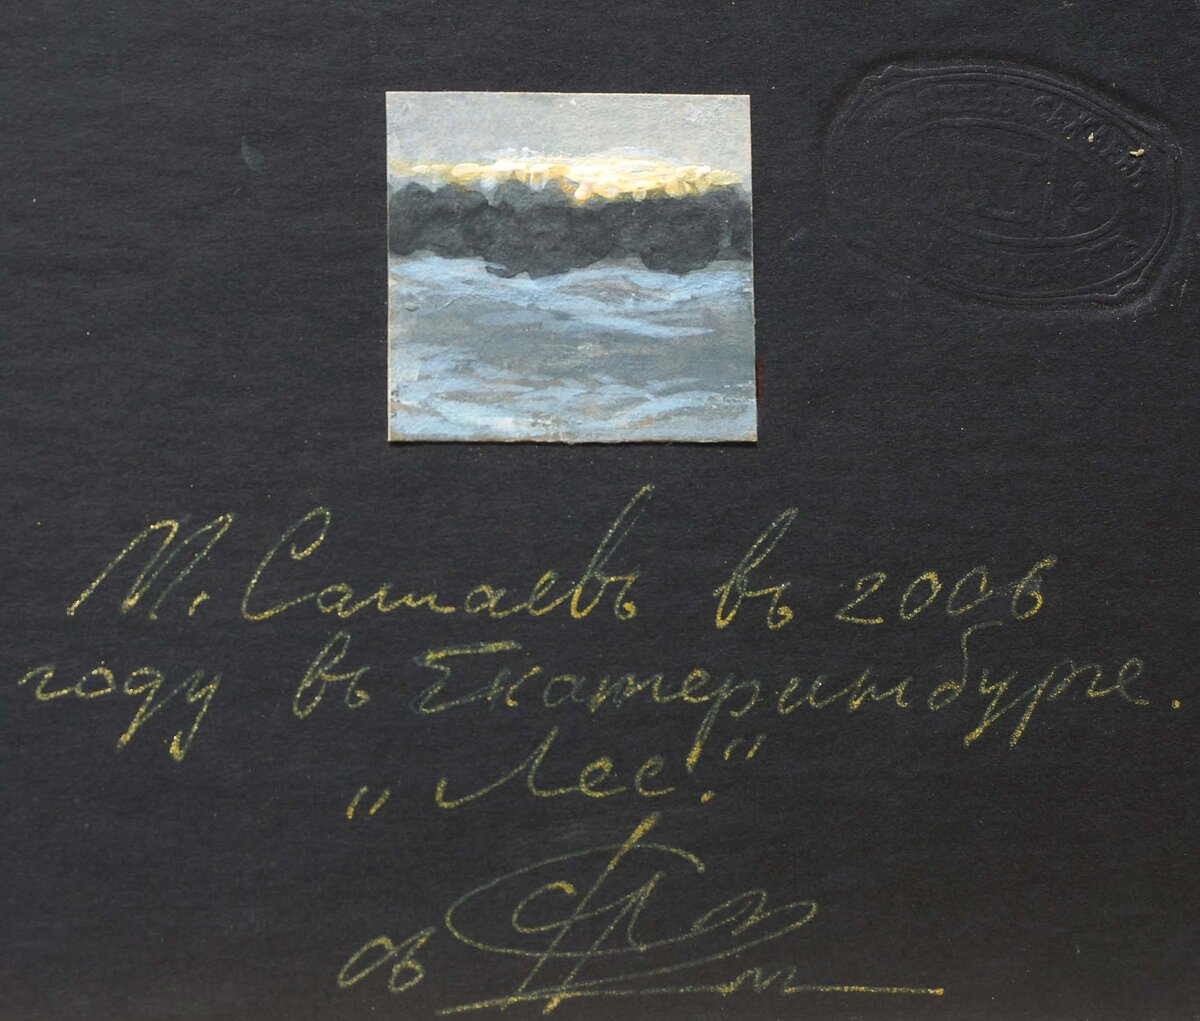 М. Сатаевъ въ 2006
году въ Екатеринбурге.
„Лес!"
06